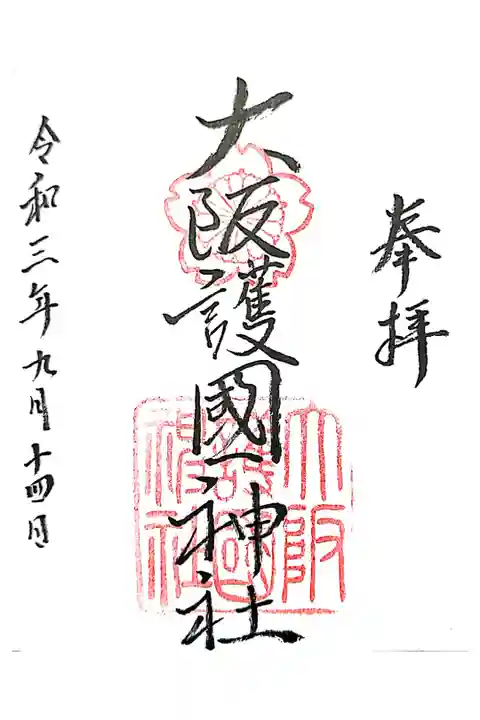 奉拝
大阪護國神社
大阪護國神社
令和三年九月十四日